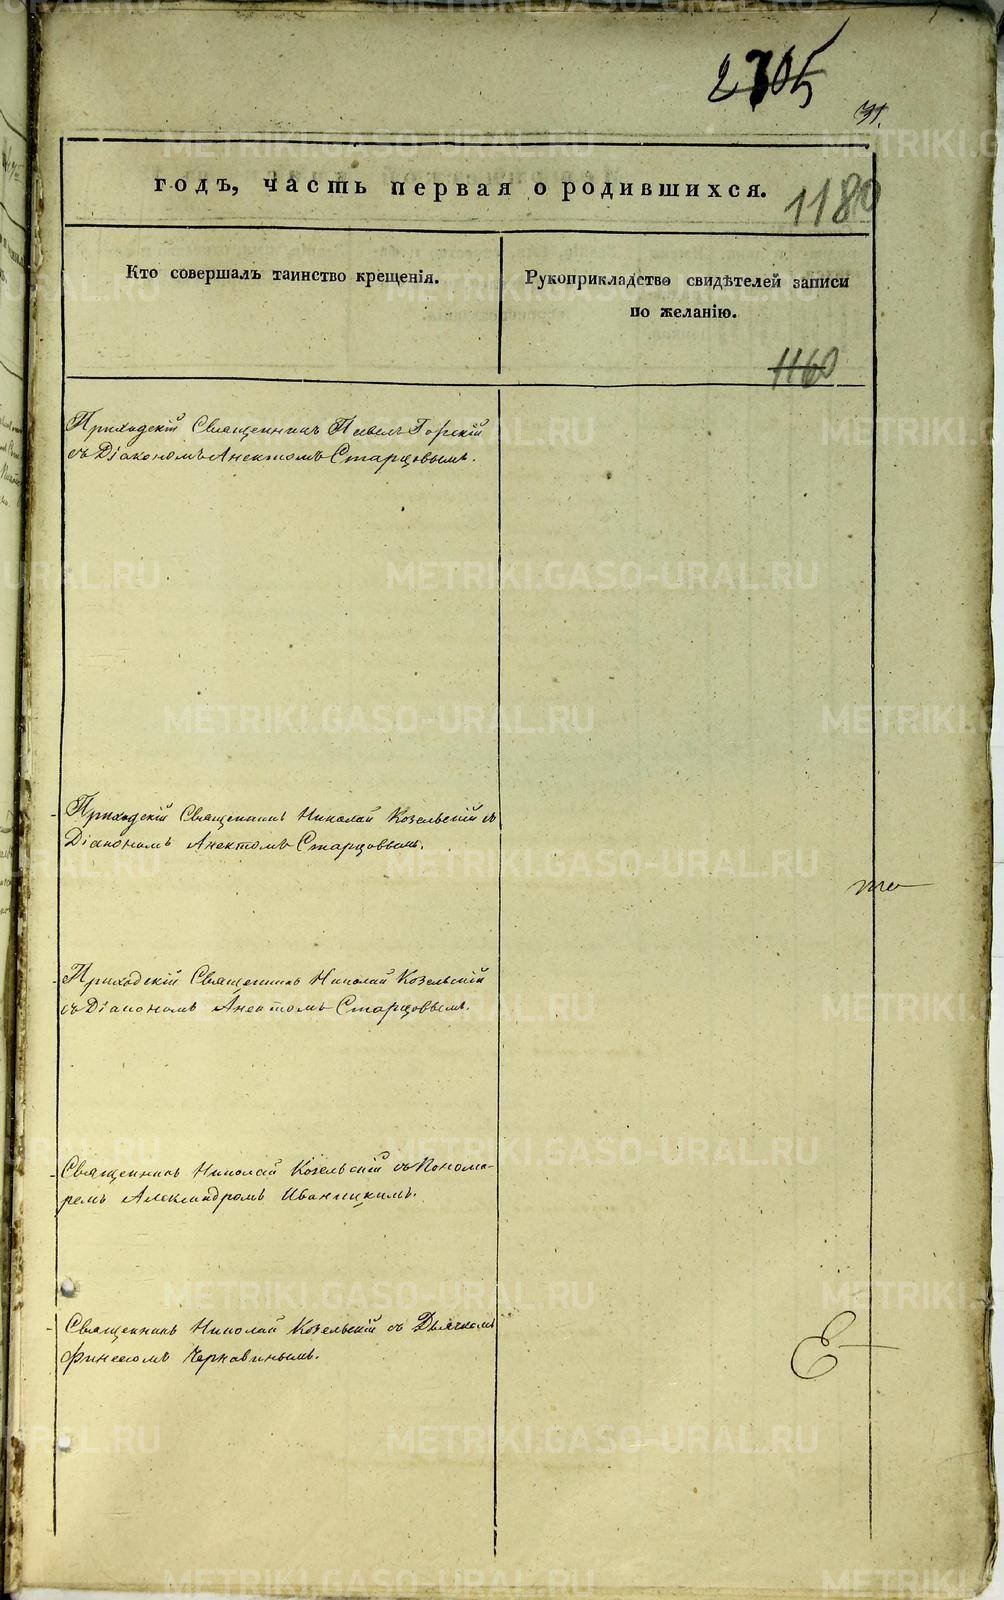 2705
31.
годъ, часть первая о родившихся.
1180
Кто совершалъ таинство крещенія.
Рукоприкладство свидѣтелей записи
по желанію.
1160
Приходскій Священникъ Павелъ Горскій
съ Діакономъ Анектомъ Старцовымъ.
Приходскій Священникъ Николай Козельскій съ
Діакономъ Анектомъ Старцовымъ.
Приходскій Священникъ Николай Козельскій
съ Діакономъ Анектомъ Старцовымъ.
Священникъ Николай Козельскій съ Понома-
ремъ Александромъ Иваницкимъ.
Священникъ Николай Козельскій съ Дьячкомъ
Финеесомъ Чернавинымъ.
METRIKI.GASO-URAL.RU